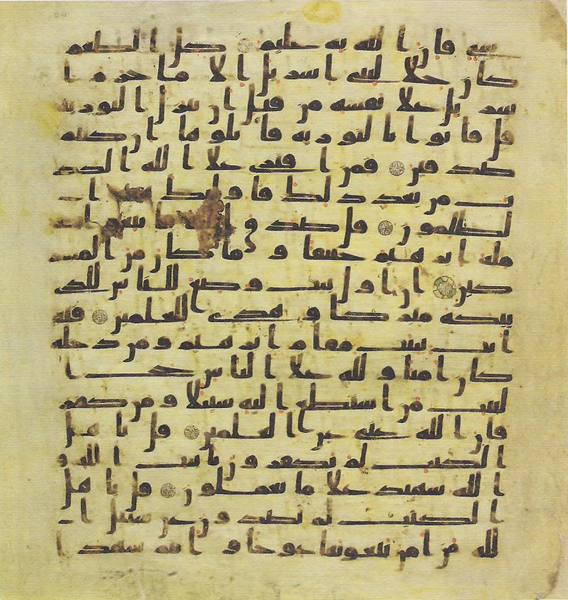 شى فان الله به عليم كل الطعم
كان حلا لبنى اسريل الا ما حرم ا
سريل على نفسه من قبل ان تنزل التوريه
قل فاتوا بالتوريه فاتلوها ان كنتم
صدقين فمن افترى على الله الكذ
ب من بعد ذلك فاوليك هم ا
لظلمون قل صدق الله فاتبعوا
مله ابرهيم حنيفا وما كان من المشر
كين ان اول بيت وضع للناس للذى
ببكه مبركا وهدى للعلمين فيه
ايت بينت مقام ابرهيم ومن دخله
كان امنا ولله على الناس حج ا
لبيت من استطع اليه سبيلا ومن كفر
فان الله غنى عن العلمين قل ياهل
الكتب لم تكفرون بايت الله و
الله شهيد على ما تعملون قل ياهل
الكتب لم تصدون عن سبيل ا
لله من امن تبغونها عوجا وانتم شهدا